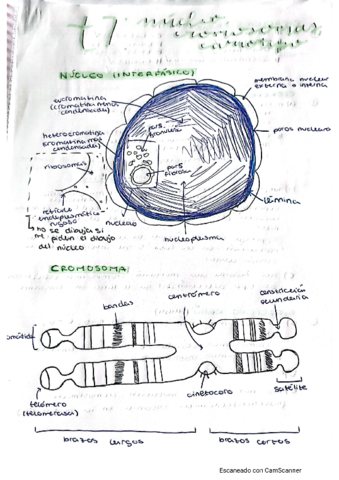 t7 núcleo,
cromosomas,
cariotipo
NÚCLEO (INTERFÁSICO)
membrana nuclear
externa e interna
eucromatina
(cromatina menos
condensada)
poros nucleares
heterocromatina
(cromatina más
condensada)
porc.
granular
ribosomas
porc.
fibrosa
lámina
retículo
endoplasmático
rugoso
nucleolo
no se dibuja si
me piden el dibujo
del núcleo
nucleoplasma
CROMOSOMA
centrómero
constricción
secundaria
bandas
cromátida
cinetocoro
satélite
telómero
(telomerasa)
brazos largos
brazos cortos
Escaneado con CamScanner